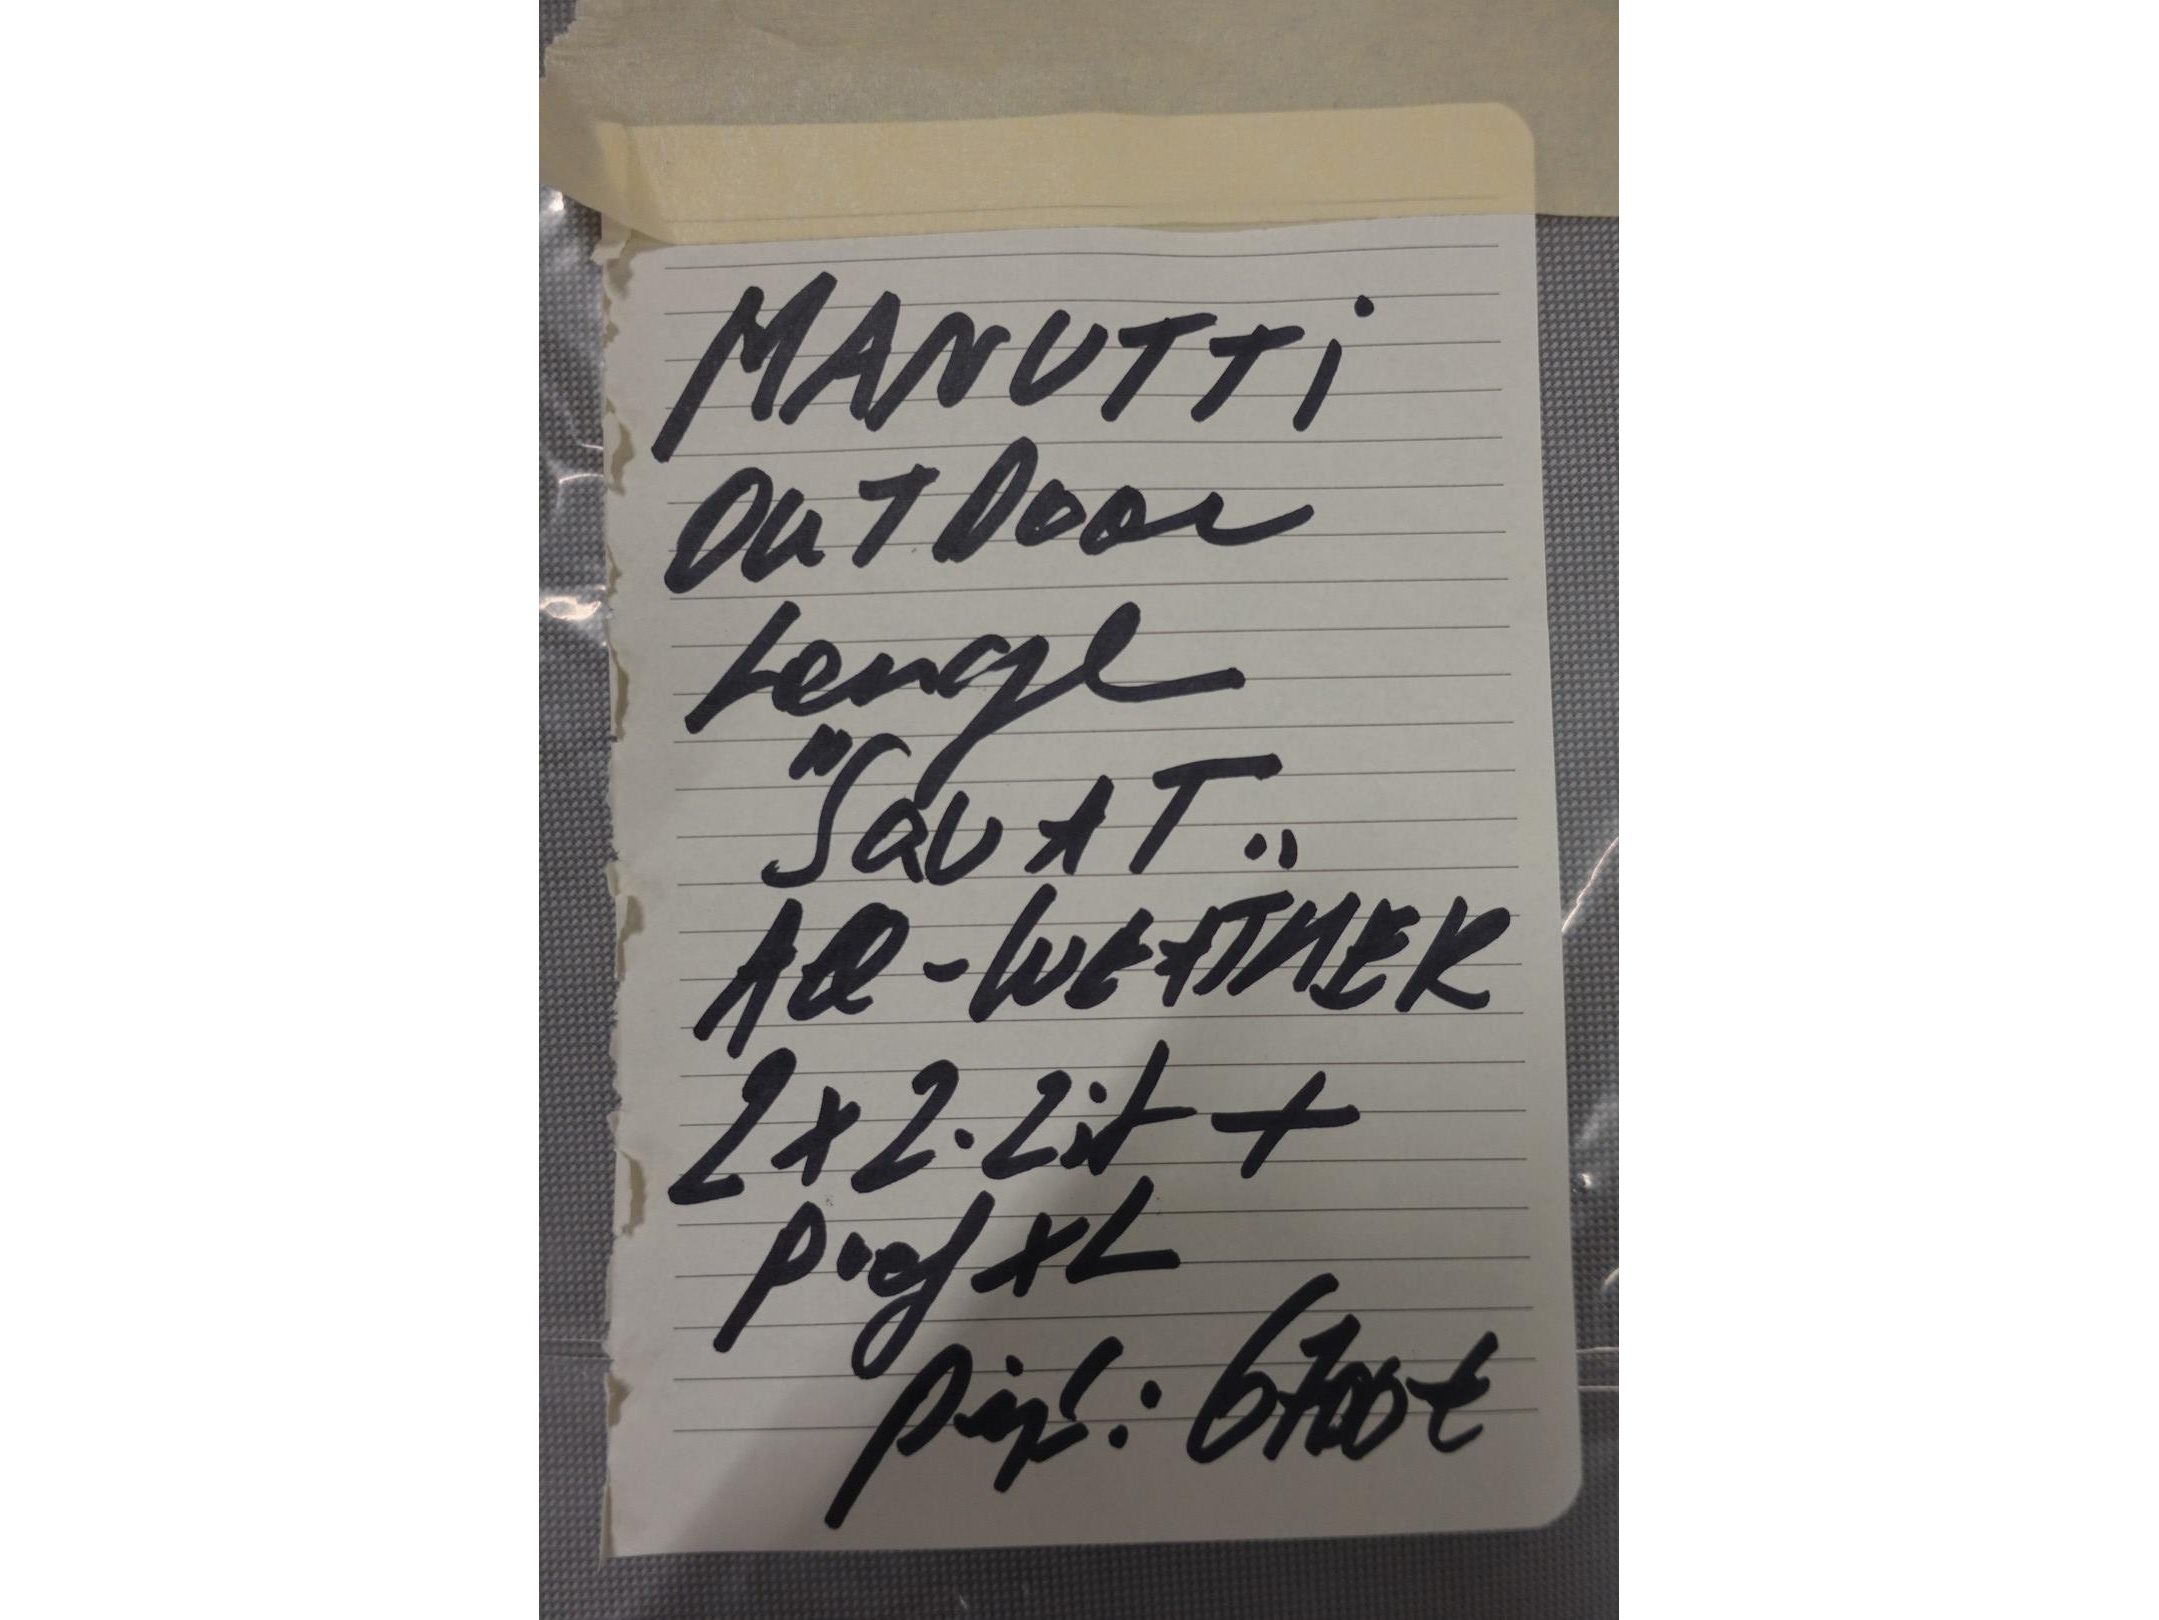 MANUTTi
OUTDoor
Lounge
"SQUAT"
All-WEATHER
2x2.Zit +
poef XL
: 6700€